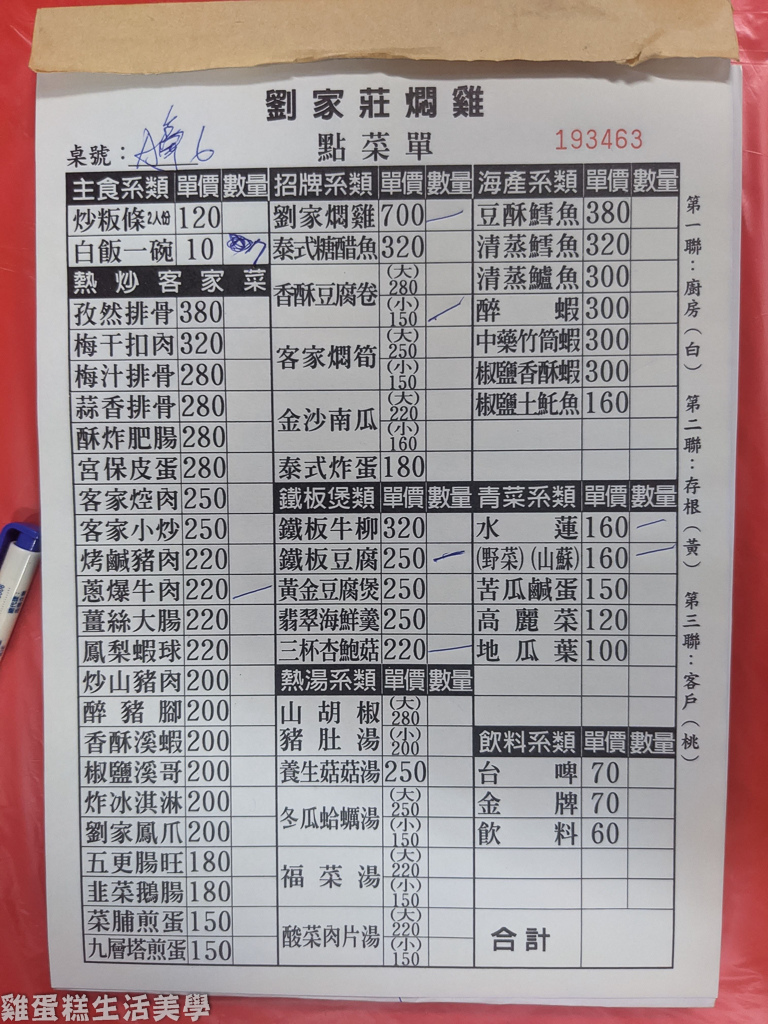 劉家莊燜雞
點菜單
193463
桌號：
主食系類 單價 數量
炒粄條 2人份 120
白飯一碗 10
熱炒客家菜
孜然排骨 380
梅干扣肉 320
梅汁排骨 280
蒜香排骨 280
酥炸肥腸 280
宮保皮蛋 280
客家焢肉 250
客家小炒 250
烤鹹豬肉 220
蔥爆牛肉 220
薑絲大腸 220
鳳梨蝦球 220
炒山豬肉 200
醉豬腳 200
香酥溪蝦 200
椒鹽溪哥 200
炸冰淇淋 200
劉家鳳爪 200
五更腸旺 180
韭菜鵝腸 180
菜脯煎蛋 150
九層塔煎蛋 150
招牌系類 單價 數量
劉家燜雞 700
泰式糖醋魚 320
香酥豆腐卷 (大) 280 (小) 150
客家燜筍 (大) 250 (小) 150
金沙南瓜 (大) 220 (小) 160
泰式炸蛋 180
鐵板煲類 單價 數量
鐵板牛柳 320
鐵板豆腐 250
黃金豆腐煲 250
翡翠海鮮羹 250
三杯杏鮑菇 220
熱湯系類 單價 數量
山胡椒豬肚湯 (大) 280 (小) 200
養生菇菇湯 250
冬瓜蛤蠣湯 (大) 250 (小) 150
福菜湯 (大) 220 (小) 150
酸菜肉片湯 (大) 220 (小) 150
海產系類 單價 數量
豆酥鱈魚 380
清蒸鱈魚 320
清蒸鱸魚 300
醉蝦 300
中藥竹筒蝦 300
椒鹽香酥蝦 300
椒鹽土魠魚 160
青菜系類 單價 數量
水蓮 160
(野菜)(山蘇) 160
苦瓜鹹蛋 150
高麗菜 120
地瓜葉 100
飲料系類 單價 數量
台啤 70
金牌 70
飲料 60
合計
第一聯：廚房(白) 第二聯：存根(黃) 第三聯：客戶(桃)
雞蛋糕生活美學